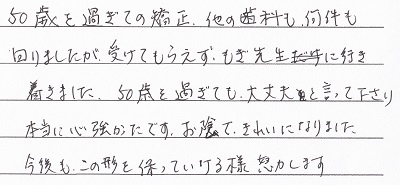 50歳を過ぎての矯正、他の歯科も、何件も
回りましたが、受けてもらえず、もぎ先生に行き
着きました、50歳を過ぎても、大丈夫と言って下さり
本当に心強かたです。お陰で、きれいになりました
今後も、この形を保っていける様努力します